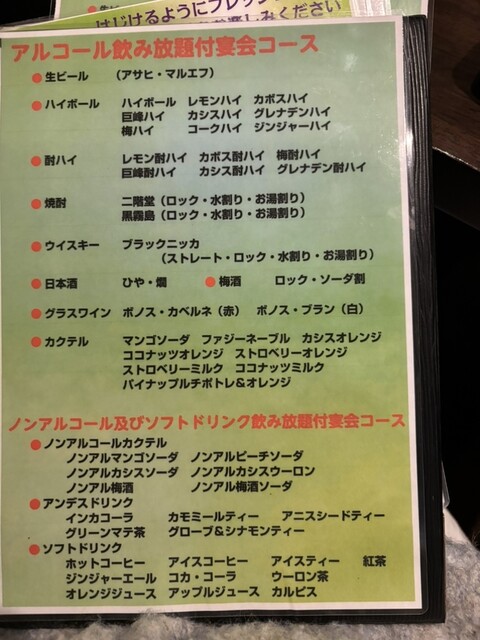 はじけるようにフレッシ
しみください
アルコール飲み放題付宴会コース
●生ビール （アサヒ・マルエフ）
●ハイボール ハイボール レモンハイ カボスハイ
巨峰ハイ カシスハイ グレナデンハイ
梅ハイ コークハイ ジンジャーハイ
●酎ハイ レモン酎ハイ カボス酎ハイ 梅酎ハイ
巨峰酎ハイ カシス酎ハイ グレナデン酎ハイ
●焼酎 二階堂（ロック・水割り・お湯割り）
黒霧島（ロック・水割り・お湯割り）
●ウイスキー ブラックニッカ
（ストレート・ロック・水割り・お湯割り）
●日本酒 ひや・燗 ●梅酒 ロック・ソーダ割
●グラスワイン ボノス・カベルネ（赤） ボノス・ブラン（白）
●カクテル マンゴソーダ ファジーネーブル カシスオレンジ
ココナッツオレンジ ストロベリーオレンジ
ストロベリーミルク ココナッツミルク
パイナップルチポトレ&オレンジ
ノンアルコール及びソフトドリンク飲み放題付宴会コース
●ノンアルコールカクテル
ノンアルマンゴソーダ ノンアルピーチソーダ
ノンアルカシスソーダ ノンアルカシスウーロン
ノンアル梅酒 ノンアル梅酒ソーダ
●アンデスドリンク
インカコーラ カモミールティー アニスシードティー
グリーンマテ茶 グローブ&シナモンティー
●ソフトドリンク
ホットコーヒー アイスコーヒー アイスティー 紅茶
ジンジャーエール コカ・コーラ ウーロン茶
オレンジジュース アップルジュース カルピス